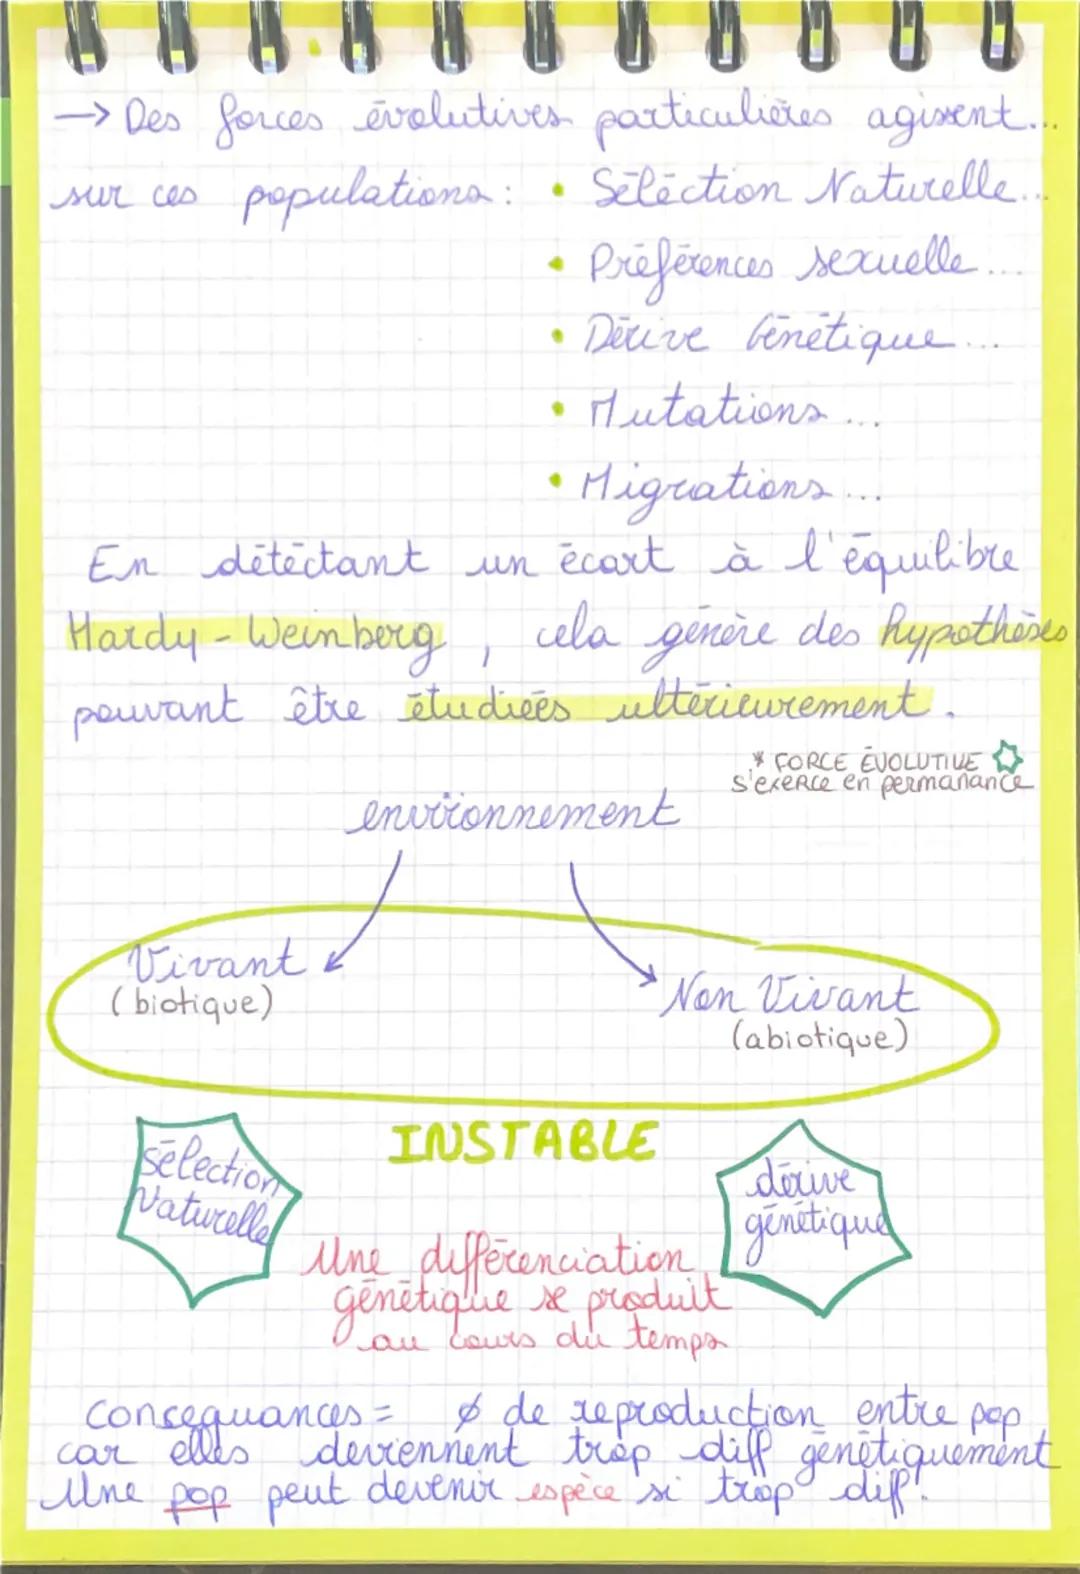 → Des forces évolutives particulières agissent...
sur ces populations : • Séléction Naturelle...
• Préférences sexuelle...
• Dérive Génétique...
• Mutations...
• Migrations...
En détéctant un écart à l'équilibre
Hardy-Weinberg, cela génère des hypothèses
pouvant être étudiéés ultérieurement.
* FORCE ÉVOLUTIVE
s'exerce en permanance
environnement
Vivant
(biotique)
Non Vivant
(abiotique)
INSTABLE
sélection
Naturelle
dérive
génétique
Une différenciation
génétique se produit
au cours du temps
consequances = ø de reproduction entre pop
car elles deviennent trop diff génétiquement
Une pop peut devenir espèce si trop diff.